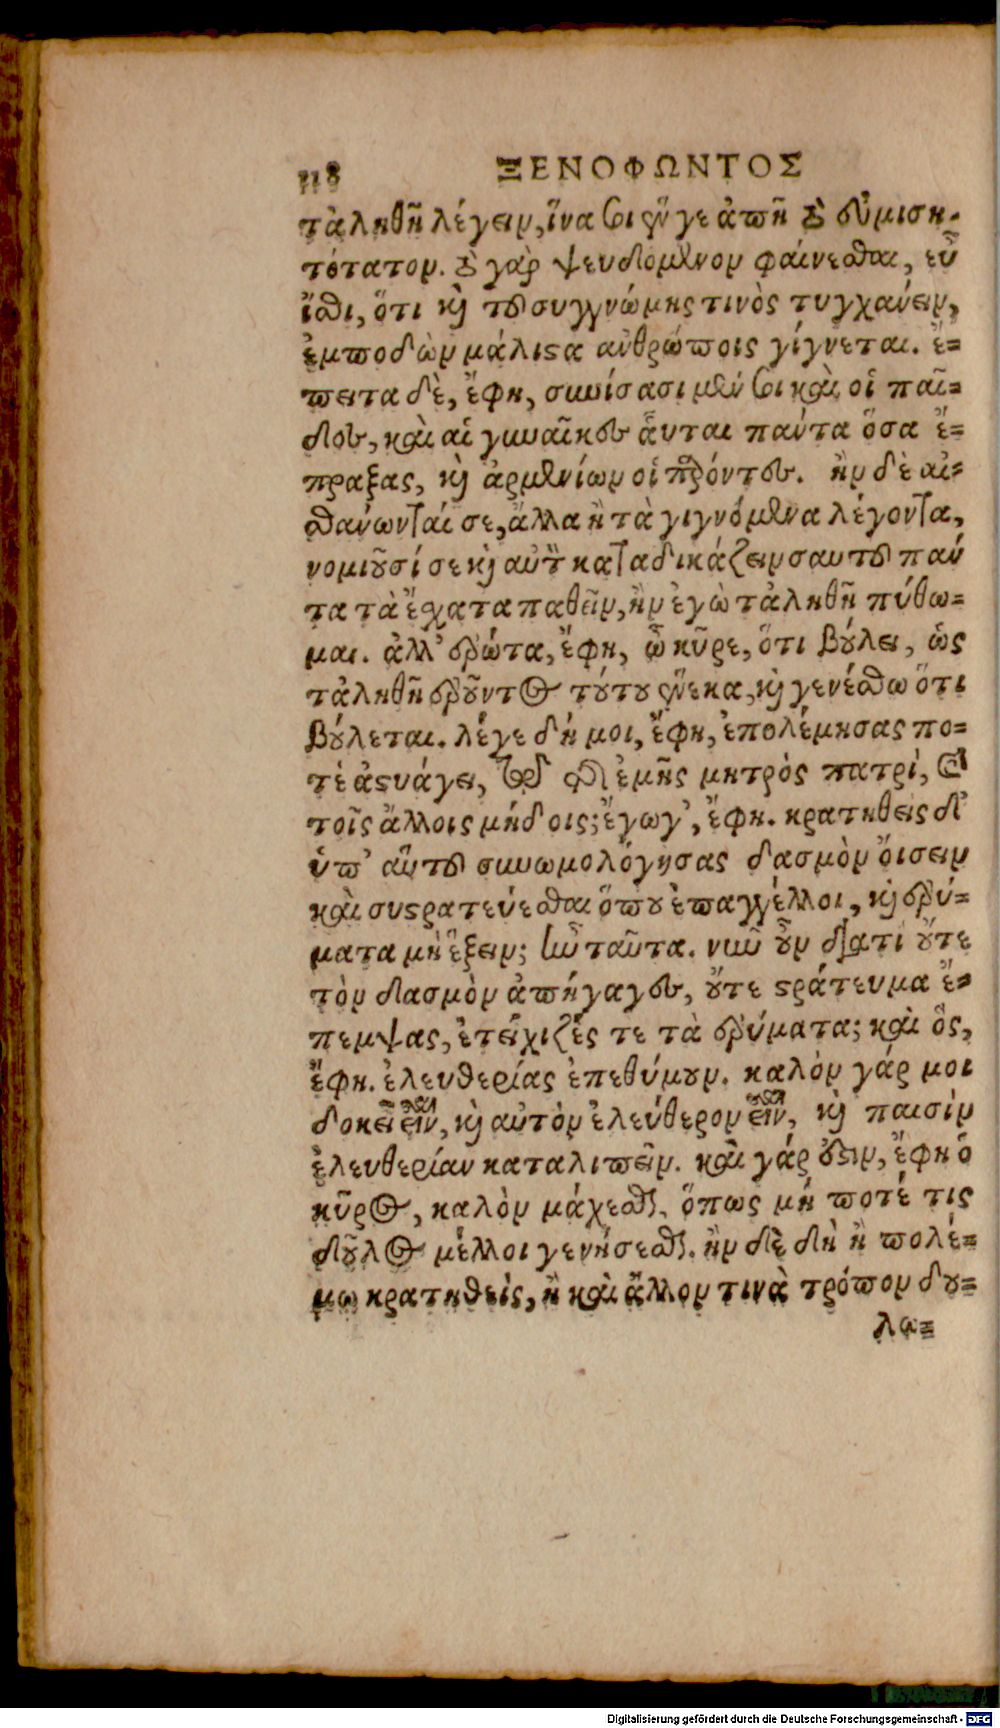 118 ΞΕΝΟΦΩΝΤΟΣ
τἀληθῆ λέγειν, ἵνα σοι ἕν γε ἀπῇ τὸ δυσμιση-
τότατον. τὸ γὰρ ψευδόμενον φαίνεσθαι, εὖ
ἴσθι, ὅτι καὶ τοῦ συγγνώμης τινὸς τυγχάνειν,
ἐμποδὼν μάλιστα ἀνθρώποις γίγνεται. ἔ-
πειτα δὲ, ἔφη, συνίσασι μέν σοι καὶ οἱ παῖ-
δες, καὶ αἱ γυναῖκες αὗται πάντα ὅσα ἔ-
πραξας, καὶ ἀρμενίων οἱ παρόντες. ἢν δὲ αἰ-
σθάνωνταί σε, ἄλλα ἢ τὰ γιγνόμενα λέγοντα,
νομιοῦσί σε καὶ αὐτὸν καταδικάζειν σαυτοῦ πάν
τα τὰ ἔσχατα παθεῖν, ἢν ἐγὼ τἀληθῆ πύθω-
μαι. ἀλλ' ἐρώτα, ἔφη, ὦ κῦρε, ὅτι βούλει, ὡς
τἀληθῆ ἐροῦντος τούτου ἕνεκα, καὶ γενέσθω ὅτι
βούλεται. λέγε δή μοι, ἔφη, ἐπολέμησας πο-
τὲ ἀστυάγει, τῷ τῆς ἐμῆς μητρὸς πατρὶ, καὶ
τοῖς ἄλλοις μήδοις; ἔγωγ', ἔφη. κρατηθεὶς δ'
ὑπ' αὐτοῦ συνωμολόγησας δασμὸν οἴσειν
καὶ συστρατεύεσθαι ὅπου ἐπαγγέλλοι, καὶ ἐρύ-
ματα μὴ ἕξειν; ἦν ταῦτα. νῦν οὖν διατί οὔτε
τὸν δασμὸν ἀπήγαγες, οὔτε στράτευμα ἔ-
πεμψας, ἐτείχιζές τε τὰ ἐρύματα; καὶ ὃς,
ἔφη. ἐλευθερίας ἐπεθύμουν. καλὸν γάρ μοι
δοκεῖ εἶναι, καὶ αὐτὸν ἐλεύθερον εἶναι, καὶ παισὶν
ἐλευθερίαν καταλιπεῖν. καὶ γάρ ἐστιν, ἔφη ὁ
κῦρος, καλὸν μάχεσθαι, ὅπως μή ποτέ τις
δοῦλος μέλλοι γενήσεσθαι. ἢν δὲ δὴ ἢ πολέ-
μω κρατηθεὶς, ἢ καὶ ἄλλον τινὰ τρόπον δου-
λω-
Digitalisierung gefördert durch die Deutsche Forschungsgemeinschaft - DFG